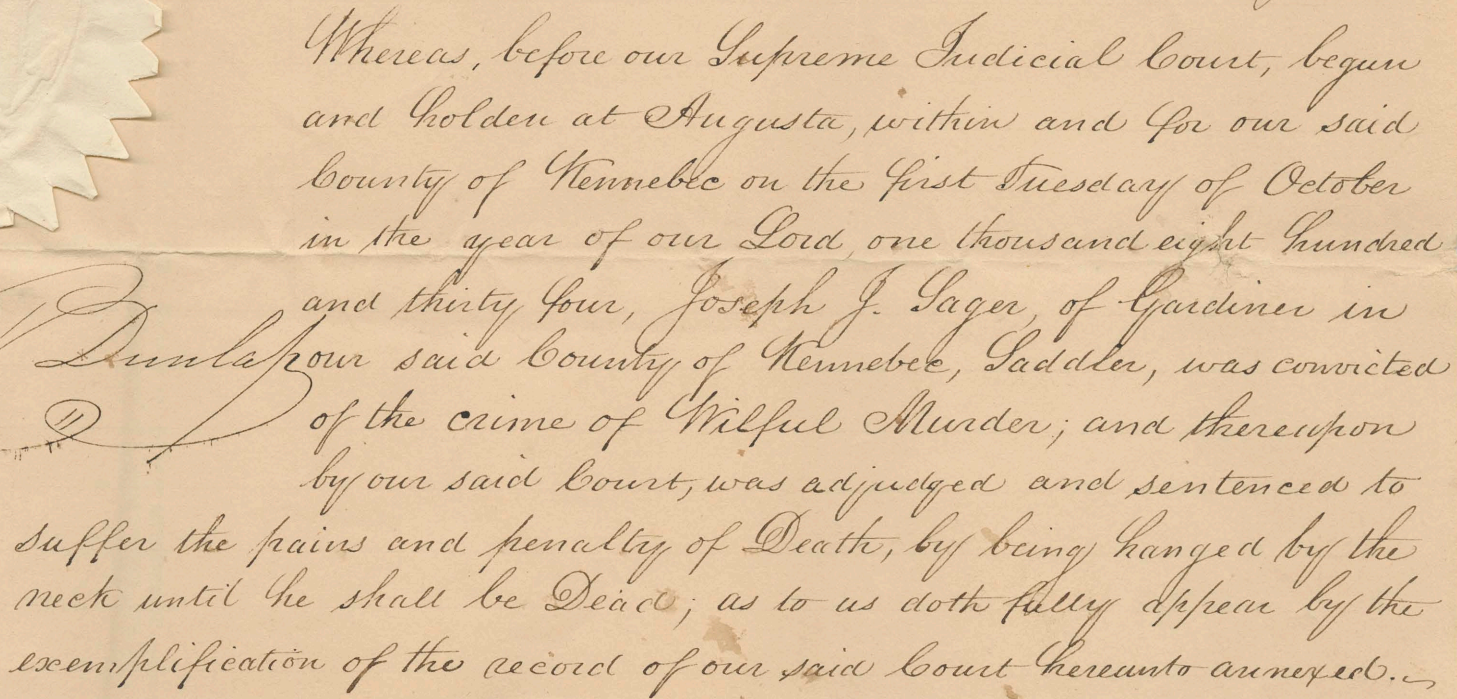 Whereas, before our Supreme Judicial Court, begun
and holden at Augusta, within and for our said
County of Kennebec on the first Tuesday of October
in the year of our Lord one thousand eight hundred
and thirty four, Joseph J. Sager, of Gardiner in
Dunlap
our said County of Kennebec, Saddler, was convicted
of the crime of Wilful Murder; and thereupon
by our said Court, was adjudged and sentenced to
suffer the pains and penalty of Death, by being hanged by the
neck until he shall be Dead; as to us doth fully appear by the
exemplification of the record of our said Court hereunto annexed.